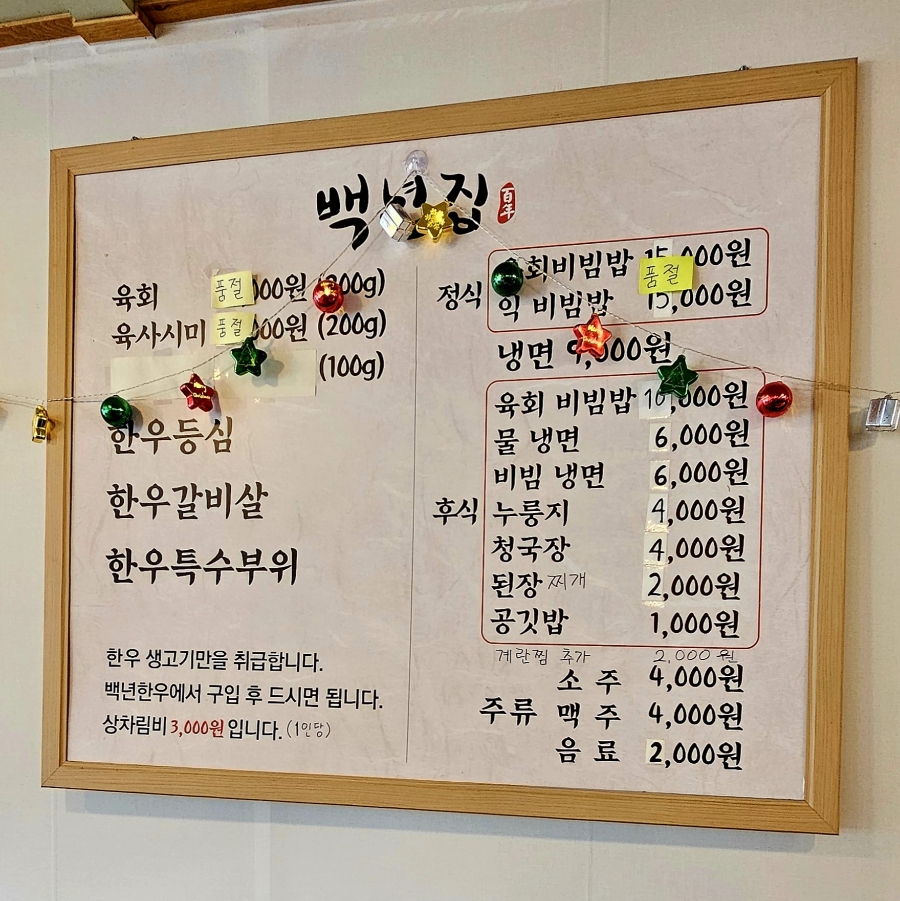 백년집 百年
육회 품절 000원 (200g)
육사시미 품절 000원 (200g)
(100g)
한우등심
한우갈비살
한우특수부위
한우 생고기만을 취급합니다.
백년한우에서 구입 후 드시면 됩니다.
상차림비 3,000원 입니다. (1인당)
정식
회비빔밥 15,000원
품절
익 비빔밥 15,000원
냉면 9,000원
후식
육회 비빔밥 10,000원
물 냉면 6,000원
비빔 냉면 6,000원
누룽지 4,000원
청국장 4,000원
된장 찌개 2,000원
공깃밥 1,000원
계란찜 추가 2,000원
주류
소주 4,000원
맥주 4,000원
음료 2,000원